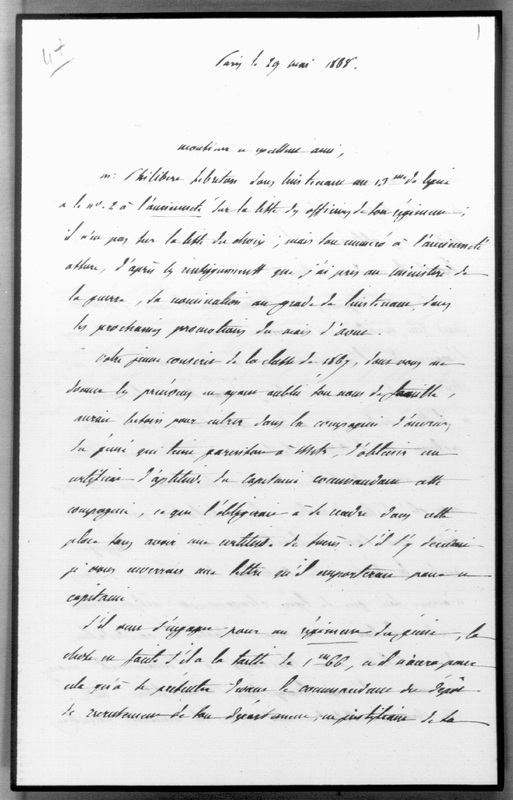 4+
1
Paris le 29 mai 1868.
monsieur et excellent ami,
m. Philibert Lebreton sous lieutenant au 13me de ligne
a le no. 2 à l'ancienneté sur la liste des officiers de son régiment;
il n'est pas sur la liste du choix, mais son numéro à l'ancienneté
assure, d'après les renseignements que j'ai pris au ministère de
la guerre, sa nomination au grade de lieutenant, dans
les prochaines promotions du mois d'aout.
Votre jeune conscrit de la classe de 1867, dont vous me
donnez les prénoms en ayant oublié son nom de famille,
aurait besoin pour entrer dans la compagnie d'ouvriers
du génie qui tient garnison à Metz, d'obtenir un
certificat d'aptitude du capitaine commandant cette
compagnie, ce qui l'obligerait à se rendre dans cette
place sans avoir une certitude de succès. S'il s'y décidait
je vous enverrais une lettre qu'il emporterait pour ce
capitaine
S'il veut s'engager pour un régiment du génie, la
chose est facile s'il a la taille de 1m66, et il n'aura pour
cela qu'à se présenter devant le commandant du dépôt
de recrutement de son département, en justifiant de sa